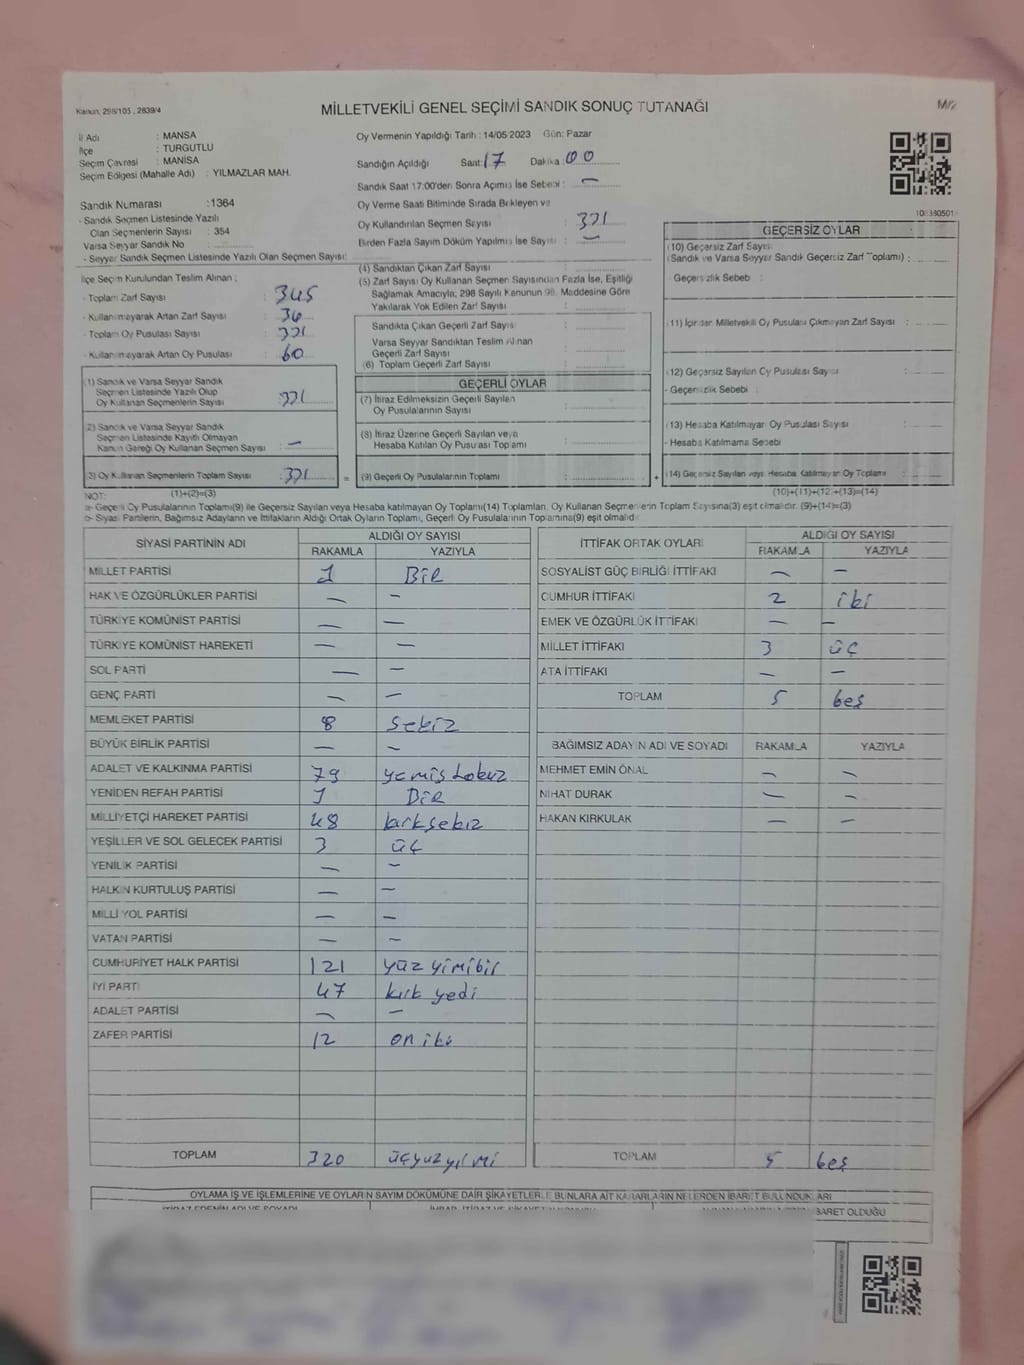 Kanun, 298/105, 2839/4
MİLLETVEKİLİ GENEL SEÇİMİ SANDIK SONUÇ TUTANAĞI
M/2
İl Adı : MANİSA
İlçe : TURGUTLU
Seçim Çevresi : MANİSA
Seçim Bölgesi (Mahalle Adı) : YILMAZLAR MAH.
Sandık Numarası :1364
- Sandık Seçmen Listesinde Yazılı
Olan Seçmenlerin Sayısı : 354
Varsa Seyyar Sandık No
- Seyyar Sandık Seçmen Listesinde Yazılı Olan Seçmen Sayısı:
Oy Vermenin Yapıldığı Tarih : 14/05/2023 Gün: Pazar
Sandığın Açıldığı Saat 17 Dakika : 00
Sandık Saat 17:00'den Sonra Açılmış İse Sebebi : —
Oy Verme Saati Bitiminde Sırada Bekleyen ve
Oy Kullandırılan Seçmen Sayısı : 321
Birden Fazla Sayım Döküm Yapılmış İse Sayısı : —
İlçe Seçim Kurulundan Teslim Alınan ;
- Toplam Zarf Sayısı : 345
- Kullanılmayarak Artan Zarf Sayısı :
- Toplam Oy Pusulası Sayısı :
- Kullanılmayarak Artan Oy Pusulası : 60
(1) Sandık ve Varsa Seyyar Sandık
Seçmen Listesinde Yazılı Olup
Oy Kullanan Seçmenlerin Sayısı : 321
(2) Sandık ve Varsa Seyyar Sandık
Seçmen Listesinde Kayıtlı Olmayan
Kanun Gereği Oy Kullanan Seçmen Sayısı : —
(3) Oy Kullanan Seçmenlerin Toplam Sayısı : 321 =
(4) Sandıktan Çıkan Zarf Sayısı :
(5) Zarf Sayısı Oy Kullanan Seçmen Sayısından Fazla İse, Eşitliği
Sağlamak Amacıyla; 298 Sayılı Kanunun 98. Maddesine Göre
Yakılarak Yok Edilen Zarf Sayısı :
Sandıkta Çıkan Geçerli Zarf Sayısı :
Varsa Seyyar Sandıktan Teslim Alınan
Geçerli Zarf Sayısı :
(6) Toplam Geçerli Zarf Sayısı :
GEÇERLİ OYLAR
(7) İtiraz Edilmeksizin Geçerli Sayılan
Oy Pusulalarının Sayısı :
(8) İtiraz Üzerine Geçerli Sayılan veya
Hesaba Katılan Oy Pusulası Toplamı :
(9) Geçerli Oy Pusulalarının Toplamı : +
100380501
GEÇERSİZ OYLAR
(10) Geçersiz Zarf Sayısı
(Sandık ve Varsa Seyyar Sandık Geçersiz Zarf Toplamı) :
Geçersizlik Sebebi :
(11) İçinden Milletvekili Oy Pusulası Çıkmayan Zarf Sayısı :
(12) Geçersiz Sayılan Oy Pusulası Sayısı :
- Geçersizlik Sebebi :
(13) Hesaba Katılmayan Oy Pusulası Sayısı :
- Hesaba Katılmama Sebebi
(14) Geçersiz Sayılan veya Hesaba Katılmayan Oy Toplamı :
NOT: (1)+(2)=(3)
(10)+(11)+(12)+(13)=(14)
a- Geçerli Oy Pusulalarının Toplamı(9) ile Geçersiz Sayılan veya Hesaba katılmayan Oy Toplamı(14) Toplamları, Oy Kullanan Seçmenlerin Toplam Sayısına(3) eşit olmalıdır. (9)+(14)=(3)
b- Siyasi Partilerin, Bağımsız Adayların ve İttifakların Aldığı Ortak Oyların Toplamı, Geçerli Oy Pusulalarının Toplamına(9) eşit olmalıdır
SİYASİ PARTİNİN ADI ALDIĞI OY SAYISI
RAKAMLA YAZIYLA
MİLLET PARTİSİ 1 BİR
HAK VE ÖZGÜRLÜKLER PARTİSİ — —
TÜRKİYE KOMÜNİST PARTİSİ — —
TÜRKİYE KOMÜNİST HAREKETİ — —
SOL PARTİ — —
GENÇ PARTİ — —
MEMLEKET PARTİSİ 8 sekiz
BÜYÜK BİRLİK PARTİSİ — —
ADALET VE KALKINMA PARTİSİ 79 yemiş dokuz
YENİDEN REFAH PARTİSİ 1 BİR
MİLLİYETÇİ HAREKET PARTİSİ 48 kırksekiz
YEŞİLLER VE SOL GELECEK PARTİSİ 3 üç
YENİLİK PARTİSİ — —
HALKIN KURTULUŞ PARTİSİ — —
MİLLİ YOL PARTİSİ — —
VATAN PARTİSİ — —
CUMHURİYET HALK PARTİSİ 121 yüz yirmibir
İYİ PARTİ 47 kırk yedi
ADALET PARTİSİ — —
ZAFER PARTİSİ 12 on iki
TOPLAM 320 üçyüzyirmi
İTTİFAK ORTAK OYLARI ALDIĞI OY SAYISI
RAKAMLA YAZIYLA
SOSYALİST GÜÇ BİRLİĞİ İTTİFAKI — —
CUMHUR İTTİFAKI 2 iki
EMEK VE ÖZGÜRLÜK İTTİFAKI — —
MİLLET İTTİFAKI 3 üç
ATA İTTİFAKI — —
TOPLAM 5 beş
BAĞIMSIZ ADAYIN ADI VE SOYADI RAKAMLA YAZIYLA
MEHMET EMİN ÖNAL — —
NİHAT DURAK — —
HAKAN KIRKULAK — —
TOPLAM 5 beş
OYLAMA İŞ VE İŞLEMLERİNE VE OYLARIN SAYIM DÖKÜMÜNE DAİR ŞİKAYETLERLE BUNLARA AİT KARARLARIN NELERDEN İBARET BULUNDUKLARI
BARET OLDUĞU